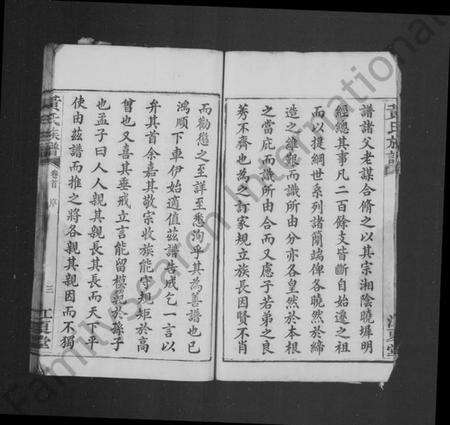 譜諸父老謀合脩之以其宗湘陰曉墀明
經總其事凡二百餘支皆斷自始遷之祖
而以提綱世系列諸簡端俾各曉然於締
造之維艱而識所由分亦各皇然於本根
之當庇而識所由合而又慮子若弟之良
莠不齊也為之訂家規立族長因賢不肖
而勸懲之至詳至悉洵乎其為善譜也已
鴻順下車伊始適值茲譜告成乞一言以
弁其首余嘉其敬宗收族能守規矩於高
曾也又喜其垂戒立言能留模範於孫子
也孟子曰人人親其親長其長而天下平
使由茲譜而推之將各親其親因而不獨
黃氏族譜
卷首
序
三
江夏堂
黃氏族譜
江夏堂
FamilySearch International